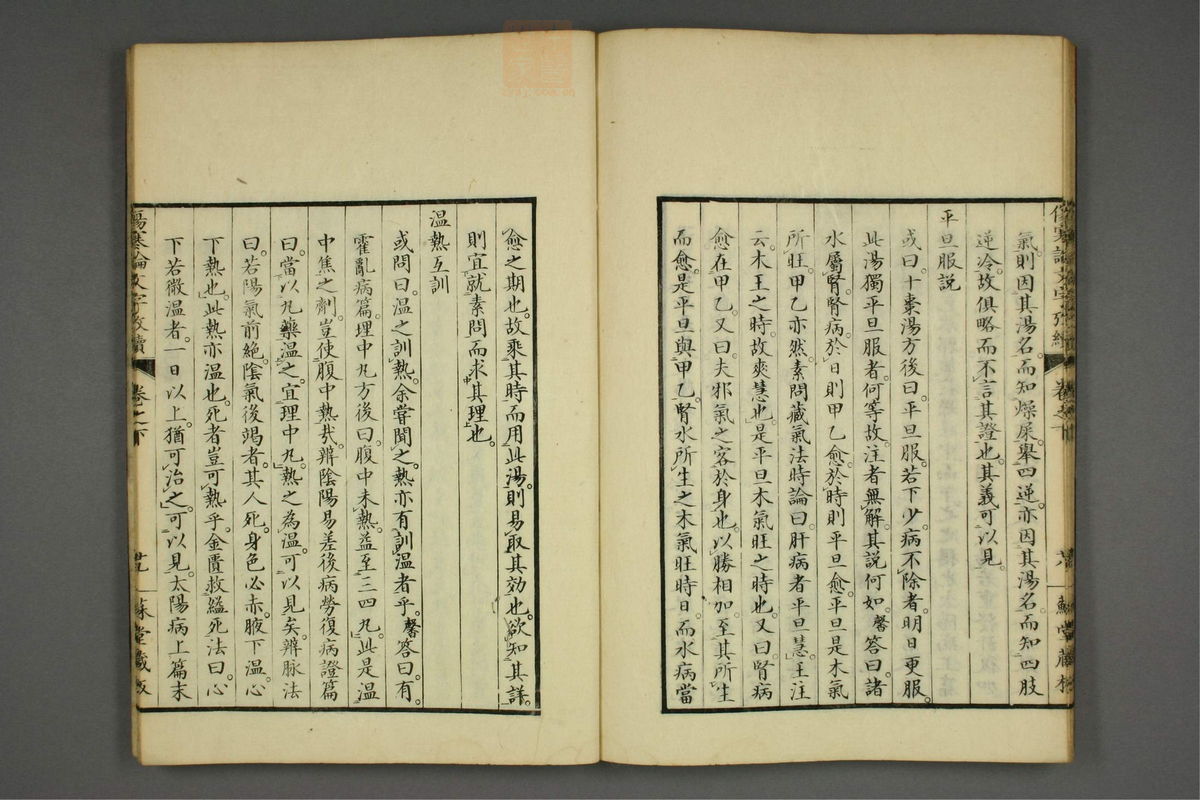 氣則因其湯名而知燥屎擧四逆亦因其湯名而知四肢
逆冷故俱略而不言其證也其義可以見
平旦服説
或曰十棗湯方後曰平旦服若下少病不除者明日更服
此湯獨平旦服者何等故注者無解其説何如馨答曰諸
水屬腎腎病於日則甲乙愈於時則平旦愈平旦是木氣
所旺甲乙亦然素問藏氣法時論曰肝病者平旦慧王注
云木王之時故爽慧也是平旦木氣旺之時也又曰腎病
愈在甲乙又曰夫邪氣之客於身也以勝相加至其所生
而愈是平旦與甲乙腎水所生之木氣旺時日而水病當
愈之期也故乘其時而用此湯則易取其効也欲知其詳
則宜就素問而求其理也
温熱互訓
或問曰温之訓熱余嘗聞之熱亦有訓温者乎馨答曰有
霍亂病篇理中丸方後曰腹中未熱益至三四丸此是温
中焦之劑豈使腹中熱哉辨陰陽易差後病勞復病證篇
曰當以丸藥温之宜理中丸熱之為温可以見矣辨脉法
曰若陽氣前絶陰氣後竭者其人死身色必赤腋下温心
下熱也此熱亦温也死者豈可熱乎金匱救縊死法曰心
下若微温者一日以上猶可治之可以見太陽病上篇末
傷寒論文字攷續
卷之下
廿九
蘇堂藏板